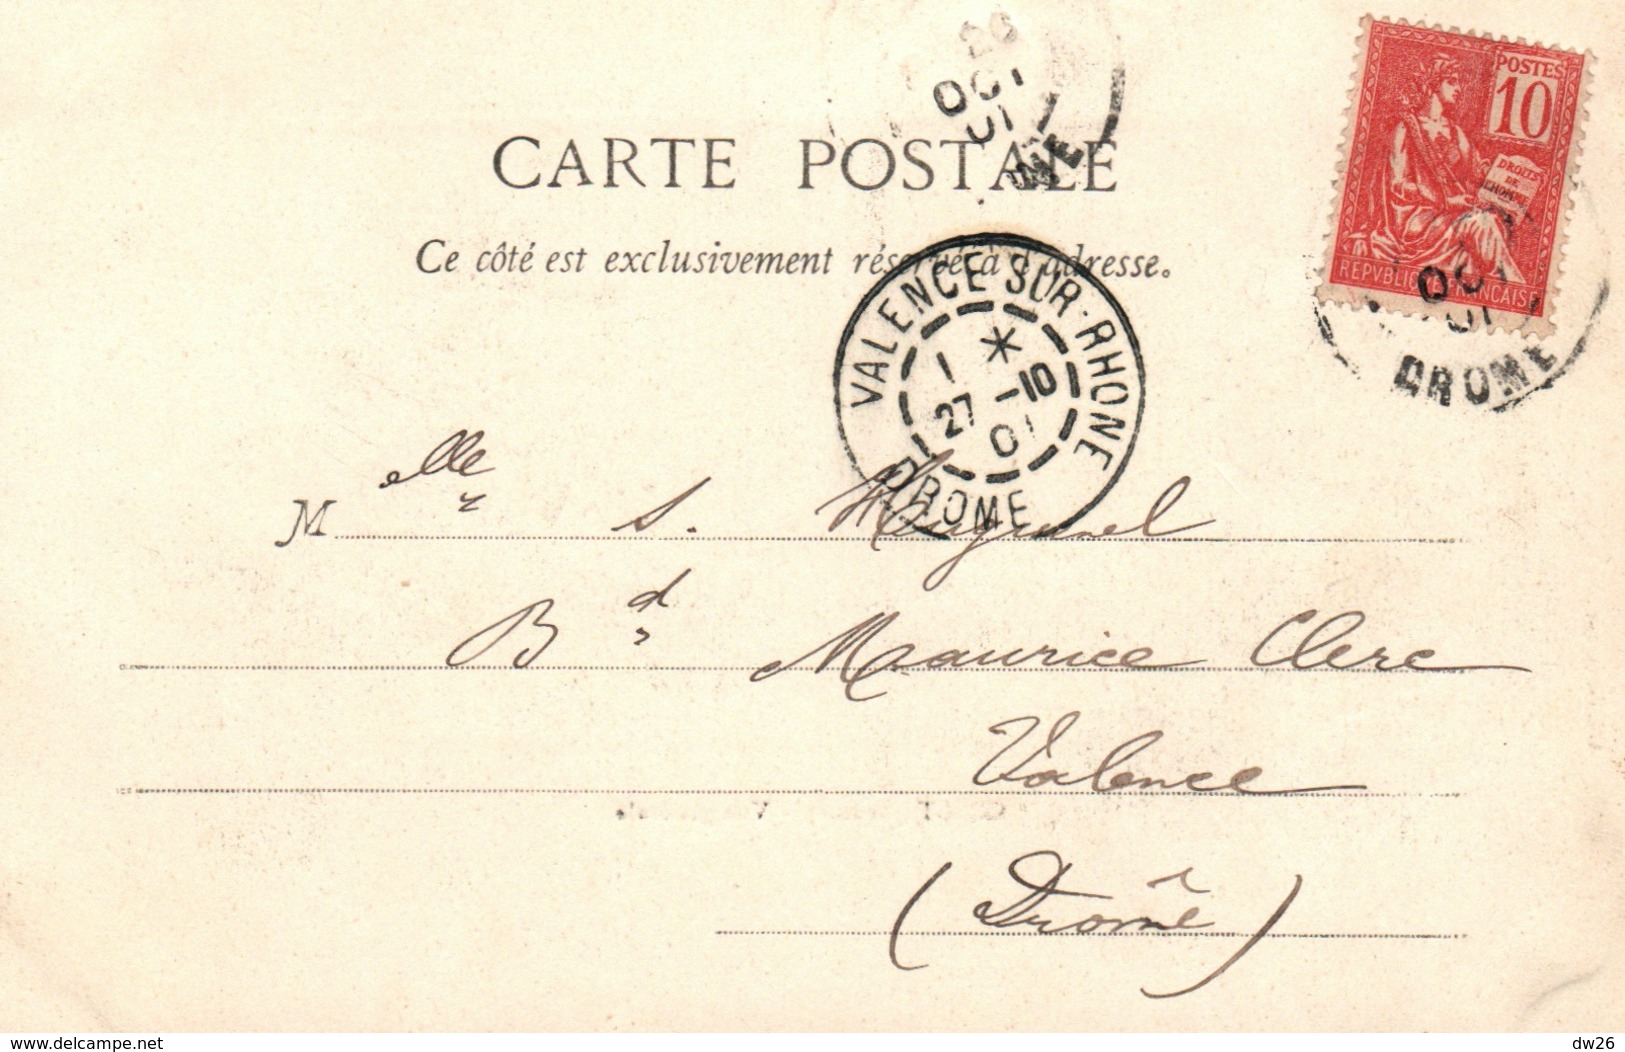 26
OCT
01
CARTE POSTALE
Ce côté est exclusivement réservé à l'adresse.
POSTES
10
DROITS
DE
L'HOMME
REPVBLIQVE FRANCAISE
OCT
01
DROME
VALENCE-SUR-RHONE
1 *
27 -10
01
DROME
Melle S.
Bd Maurice Clerc
Valence
(Drôme)
www.delcampe.net
dw26